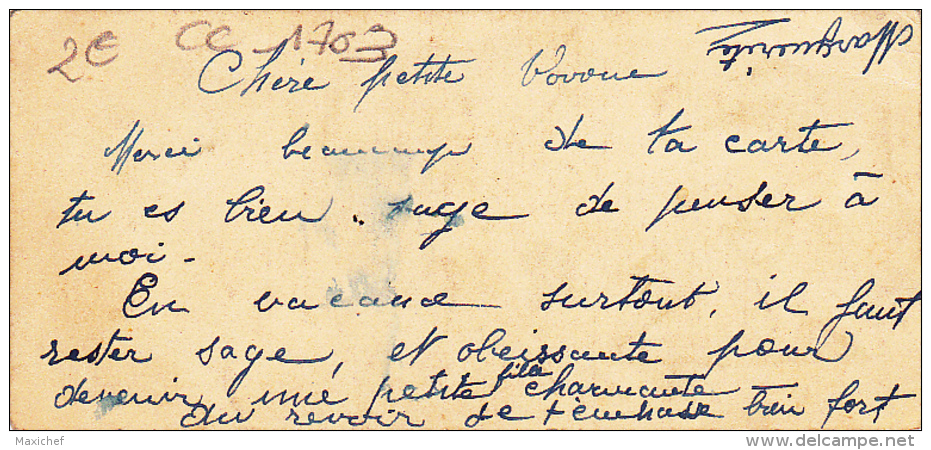 2€ CC 1703
Marguerite
Chère petite Vovone
Merci beaucoup de ta carte,
tu es bien sage de penser à
moi.
En vacance surtout, il faut
rester sage, et obeissante pour
devenir une petite fille charmante
Au revoir je t'embrasse bien fort
Maxichef
www.delcampe.net